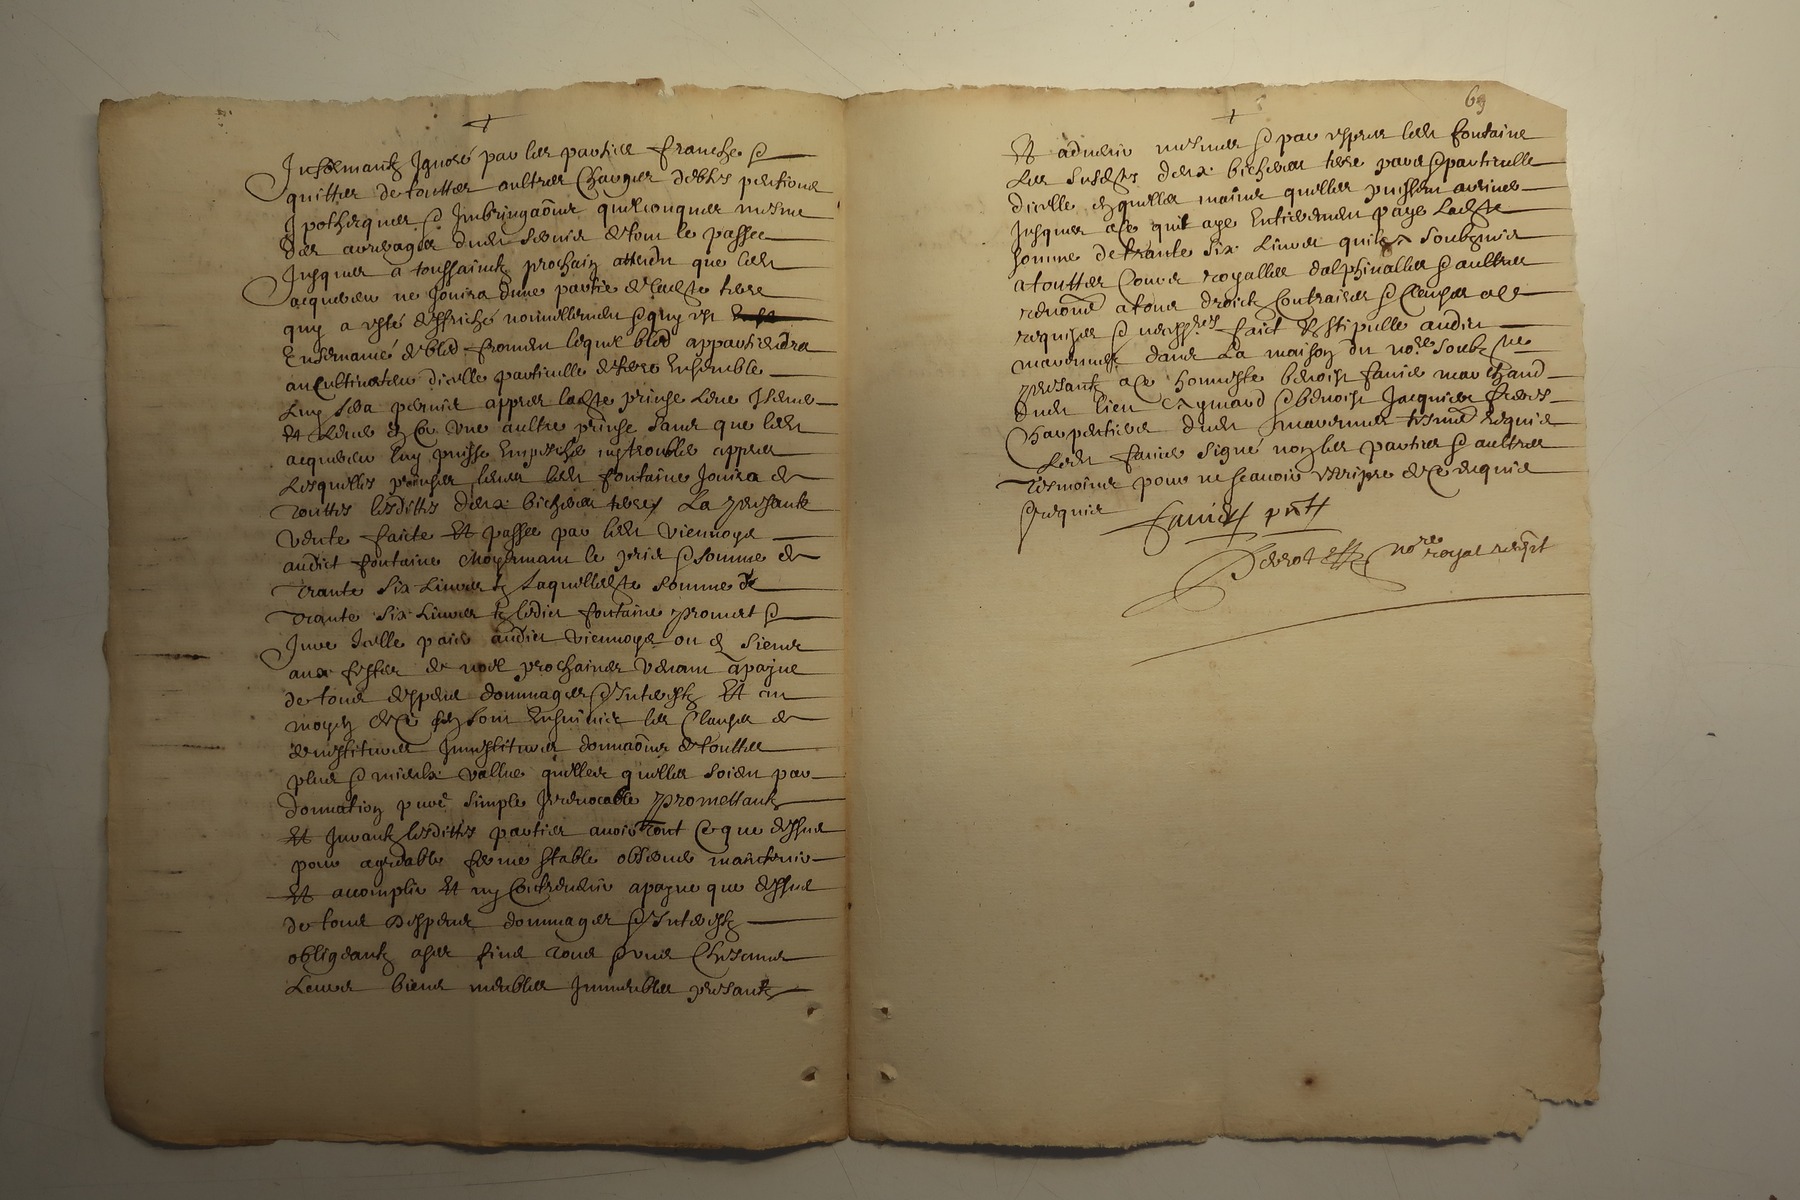 Infeemantz Ignoré par les parties franche &
quitter de toutter aultres charges debtes pentions
Ipothecques & Imbrigaõns quelconques mesme
des arreages dudit servis de tout le passee
Jusques a toussainctz prochain attendu que ledit
acquereur ne jouira dune partie de ladite terre
quy a esté deffriché nouvellement & quy est
Ensemancé de bled fromen lequel bled appartiendra
au cultivateur dicelle particulle de terre Ensemble
Luy sera permis appres ladite prinse
Et une aultre prinse sans que ledit
acquereur luy puisse Empeché ny troublé appres
Lesquelles prinses ledit fontaine Jouira de
touttes lesdittes deux bicheres terre La presante
Vente faicte Et passee par ledit Viennoys
audict fontaine moyennant le pris & somme de
trante six Livres tz Laquelle dite somme de
trante six Livres tz ledict fontaine promet &
Jure Icelle paié audict Viennoys ou es siens
aux festes de noel prochaines venant a payne
de tous despens dommages & Interestz Et au
moyen de ce sont Ensuivis les clauses de
devestitures Investitures donnaõns de touttes
plus & mieulx vallue quelles quelles soient par
donnation pure simple Irrevocable promettantz
Et Jurantz lesdittes parties avoir tout ce que dessus
pour agreable ferme stable observé maintenir
Et acomplir Et ny Contrevenir a payne que dessus
de tous Despens dommages & Interestz
obligeantz a ses fins tous & uns chescuns
Leurs biens meubles Immeubles presantz
69
Et advenir mesmes & par expres ledit fontaine
Les susdites deux bicheres terre par & particulle
dicelle es quelles mains quelles puissent arriver
Jusques a ce quil aye Entierement payé Ladite
somme de trante six Livres quil a soubzmis
a touttes Cours royalles dalphinalles & aultres
renoncé a tous droictz Contraires & clauses a ce
requises & necess.res faict & stipullé audict
marennes dans La maison du no.re soubz.ne
presantz a ce honneste benoist fanier marchand
dudit lieu Eymard & benoist Jacquier freres
charpentiers dudit marennes tesmoins requis
Ledit fanier signé non les parties & aultres
tesmoins pour ne scavoir escripre de ce enquis
& requis fanier pnt
no.re royal